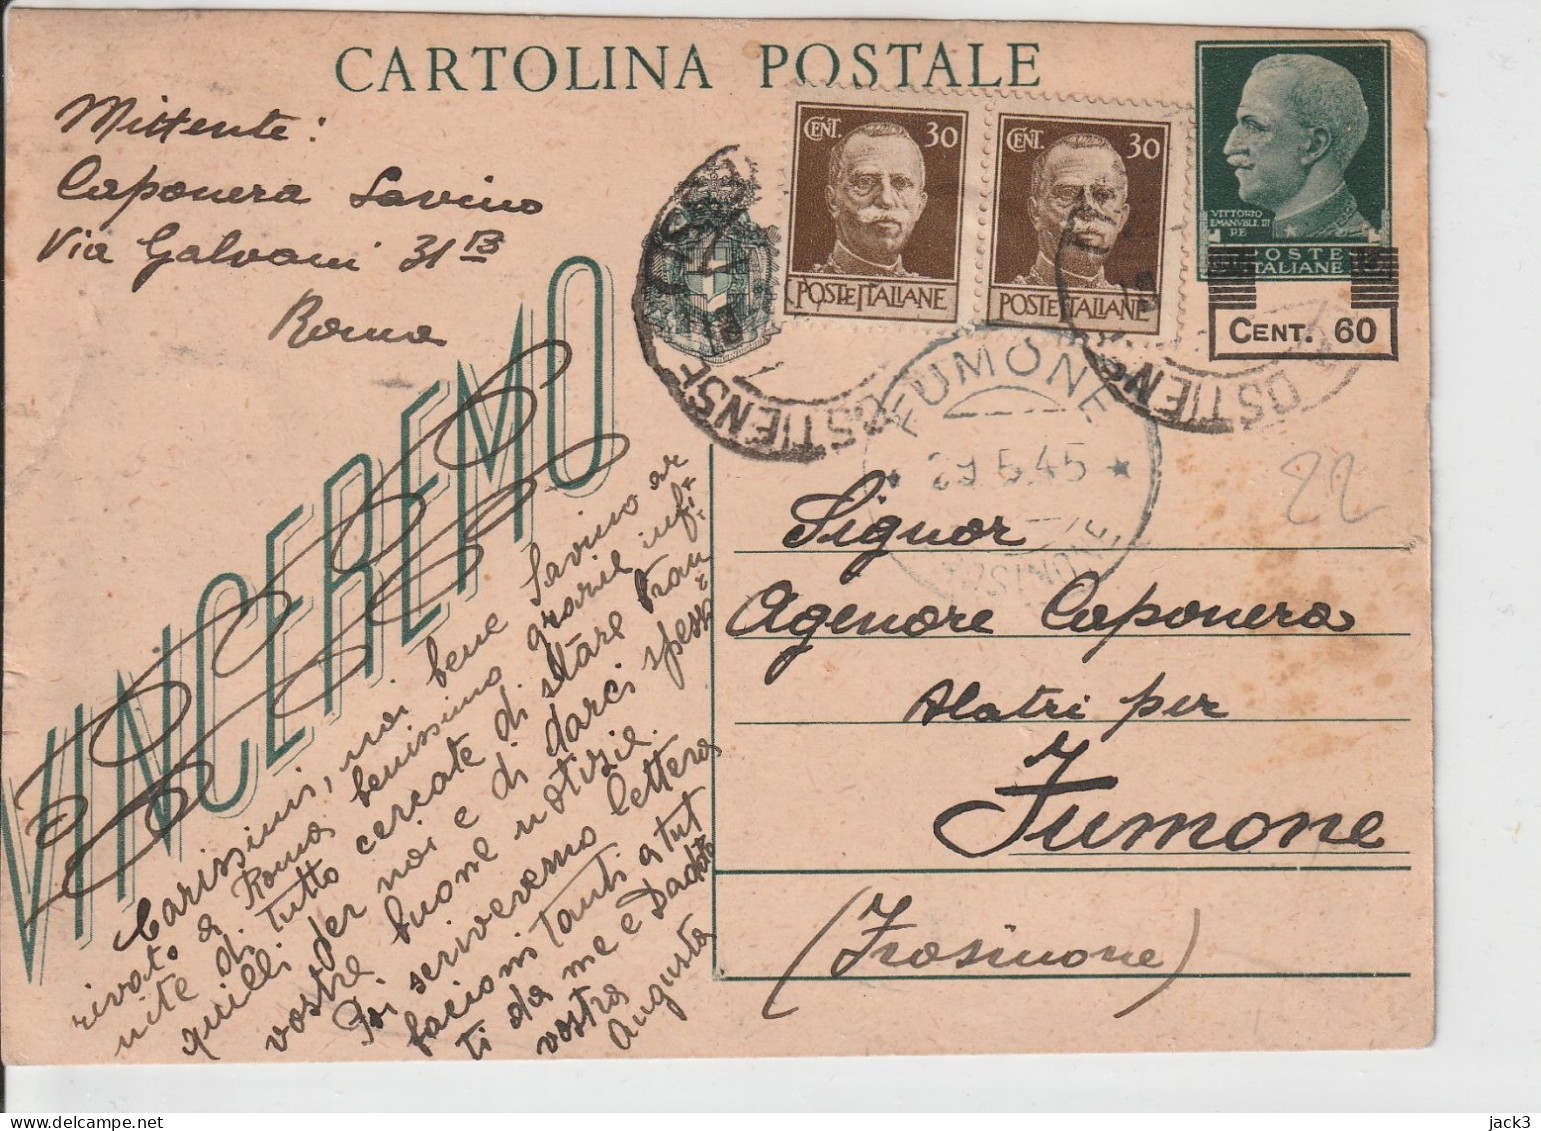 CARTOLINA POSTALE
Mittente:
Caponera Savino
Via Galvani 31 B
Roma
CENT. 30
POSTE ITALIANE
CENT. 30
POSTE ITALIANE
VITTORIO
EMANUELE III
POSTE
ITALIANE
CENT. 60
OSTIENSE
OSTIENSE
FUMONE
29.5.45
22
VINCEREMO
Signor
Agenore Caponera
Alatri per
Fumone
(Frosinone)
Carissimi, noi bene Savino ar
rivato a Roma benissimo grazie infi
nite di tutto cercate di stare tran
quilli per noi e di darci spesso
vostre buone notizie.
Poi scriveremo lettera
bacioni tanti a tut
ti da me e
vostra
Augusta
jack3